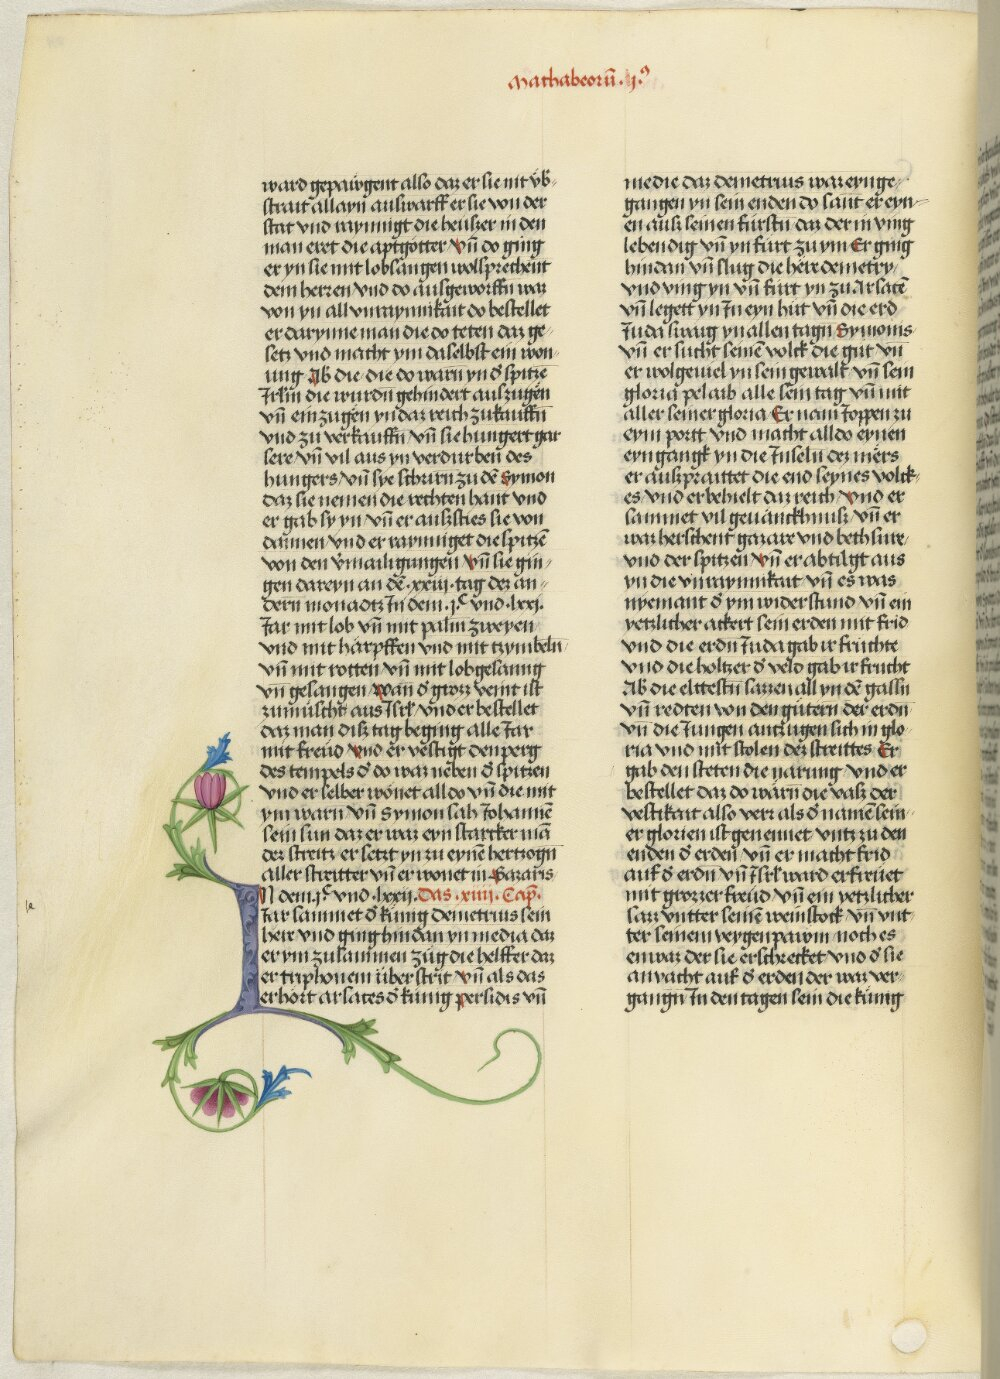 Mathabeorū .ij.⁹
ward gepawgent also daz er sie nit vb̄-
strait allayn auswarff er sie von der
stat vnd raynnigt die hewszer in den
man eret die aptgötter Vn̄ do ging
er yn sie mit lobsangen wolsprechent
dem herren vnd do ausgeworffn̄ war
von yn all vnraynnikait do bestellet
er darynne man die do teten daz ge-
setz vnd macht ym daselbst ein won-
ung Ab die die do warn yn d̄ spitze
Jrl̄m die wurdn̄ gehindert auszugen
vn̄ einzugen yn daz reich zukauffn̄
vnd zu verkauffn̄ vn̄ sie hungert gar
sere vn̄ vil aus yn verdurben des
hungers vn̄ sye schirn zu dē Symon
daz sie nemen die rechten hant vnd
er gab sy yn vn̄ er auszsties sie von
dannen vnd er raynniget die spitzē
von den v̄mailigungen Vn̄ sie gin-
gen dareyn an dē .xxiij. tag dez an-
dern monadtz Jn dem .jᶜ vnd .lxxj.
Jar mit lob vn̄ mit palm zweyen
vnd mit härpffen vnd mit tzymbeln
vn̄ mit rotten vn̄ mit lobgesanng
vn̄ gesangen Wan d̄ grozz veint ist
zumischt aus Jsrl̄ vnd er bestellet
daz man disz tag beging alle Jar
mit frewd Vnd er vestigt den perg
des tempels d̄ do waz neben d̄ spitzen
vnd er selber wonet alldo vn̄ die mit
ym warn vn̄ Symon sah Johannem
sein sun daz er waz eyn starcker mā
dez streitz er setzt yn zu eynē hertzogn̄
aller streitter vn̄ er wonet in Gazaris
JN dem .jᶜ vnd .lxxij. Das .xiiij. Cap̄.
Jar sammet d̄ kunig demetrius sein
here vnd ging hindan yn media daz
er ym zusammen zug die helffer daz
er triphonem überstrit Vn̄ als das
erhört arsates d̄ kunig persidis vn̄
medie daz demetrius waz eyn ge-
gangen yn sein enden do sant er eyn-
en ausz seinen fürstn̄ daz der in ving
lebendig vn̄ yn fürt zu ym Er ging
hindan vn̄ slug die here demetry
vnd ving yn vn̄ fürt yn zu Arsatē
vn̄ legett yn Jn eyn hüt vn̄ die erd
Juda swaig yn allen tagn̄ Symonis
vn̄ er sucht seinē volck die gut vn̄
er wolgeviel yn sein gewalt vn̄ sein
gloria pelaib alle sein tag vn̄ mit
aller seiner gloria Er nam Joppen zu
eym portt vnd macht alldo eynen
eyngangk yn die Jnseln dez mers
er auszpraittet die end seynes volck-
es vnd er behielt daz reich Vnd er
sammet vil gevänckhnusz vn̄ er
waz herschent gazare vnd bethsure
vnd der spitzen Vn̄ er abtilgt aus
yn die vnraynnikait vn̄ es was
nyemant d̄ ym widerstund vn̄ ein
yetzlicher ackert sein erden mit frid
vnd die erdn̄ Juda gab ir früchte
vnd die holtzer d̄ veld gab ir frucht
Ab die elttestn̄ sazzen all yn dē gassn̄
vn̄ redten von den gütern der erdn̄
vn̄ die Jungen antzugen sich in glo-
ria vnd mit stolen dez streittes Er
gab den steten die narung vnd er
bestellet daz do wärn die vasz der
vestikait also verz als d̄ namē sein-
er glorien ist genennet vntz zu den
enden d̄ erden vn̄ er macht frid
auf d̄ erdn̄ vn̄ Jsrl̄ ward erfrewet
mit grozzer frewd vn̄ ein yetzlicher
sazz vntter seinē weinstock vn̄ vnt-
ter seinem veygenpawm noch es
enwaz der sie erschrecket vnd d̄ sie
anvacht auf d̄ erden der waz ver-
gangn̄ Jn den tagen sein die künig